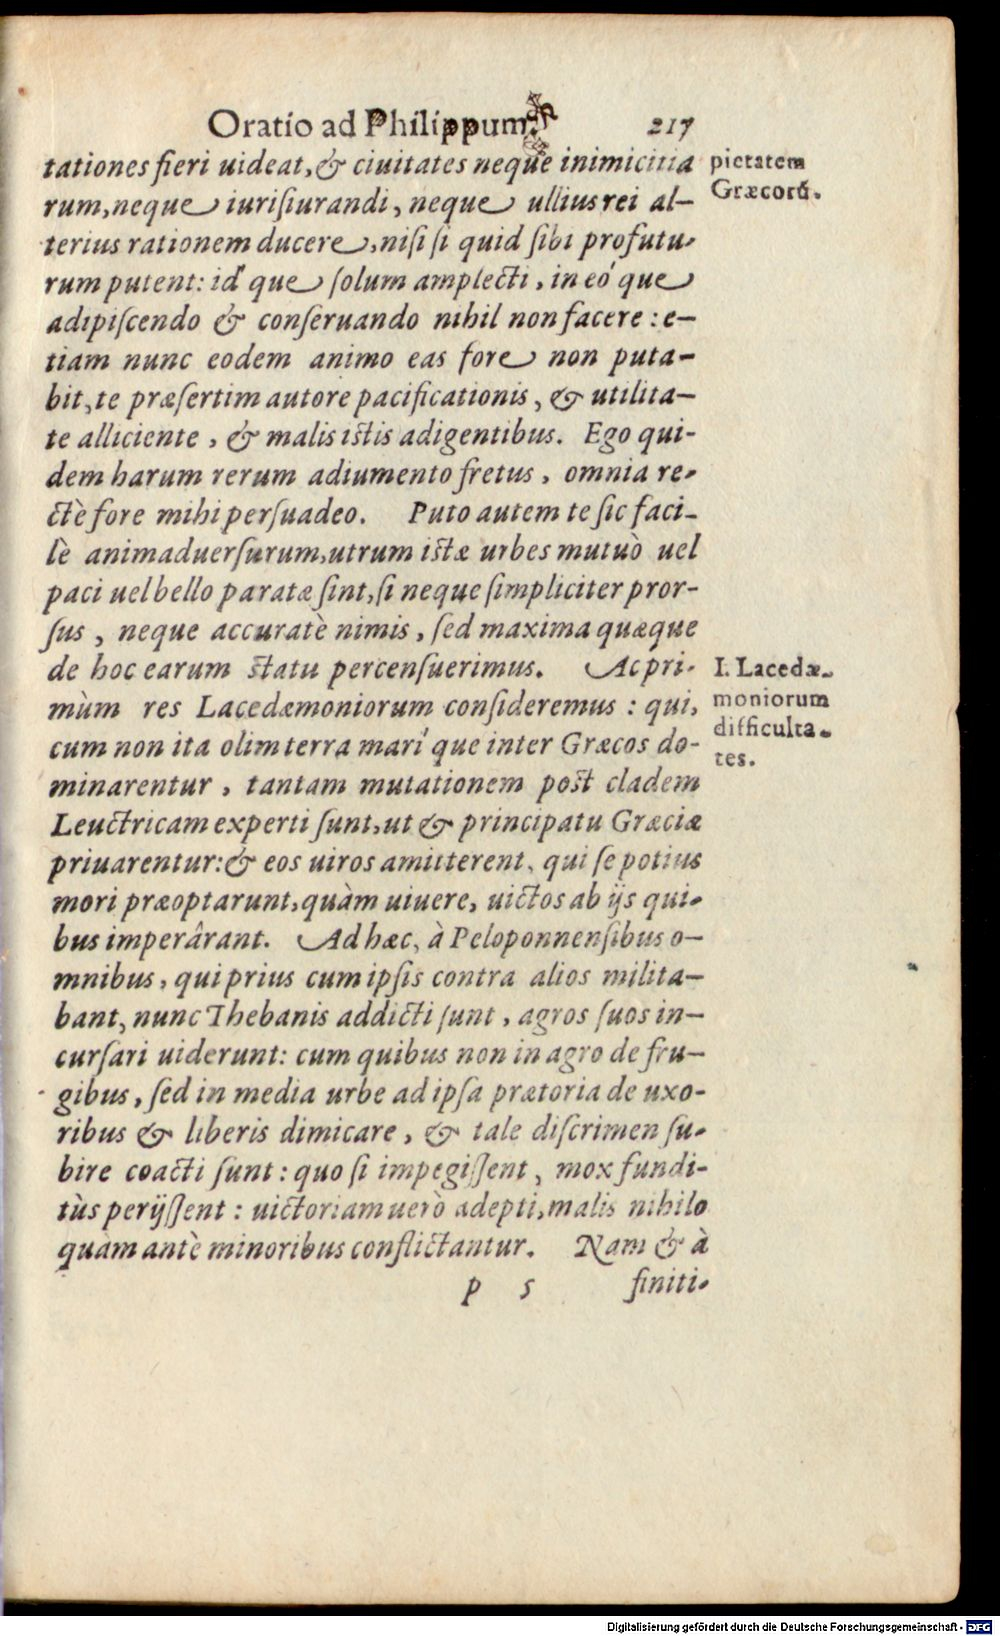 Oratio ad Philippum. 217
tationes fieri uideat, & ciuitates neque inimicitia
pietatem
rum, neque iurisiurandi, neque ullius rei al–
Græcorū.
terius rationem ducere, nisi si quid sibi profutu-
rum putent: id´ que solum amplecti, in eo´ que
adipiscendo & conseruando nihil non facere: e–
tiam nunc eodem animo eas fore non puta–
bit, te præsertim autore pacificationis, & utilita–
te alliciente, & malis istis adigentibus. Ego qui-
dem harum rerum adiumento fretus, omnia re-
ctè fore mihi persuadeo. Puto autem te sic faci-
lè animaduersurum, utrum istæ urbes mutuò uel
paci uel bello paratæ sint, si neque simpliciter pror-
sus, neque accuratè nimis, sed maxima quæque
de hoc earum statu percensuerimus. Ac pri-
I. Lacedæ-
mùm res Lacedæmoniorum consideremus: qui,
moniorum
cum non ita olim terra mari´ que inter Græcos do-
difficulta-
minarentur, tantam mutationem post cladem
tes.
Leuctricam experti sunt, ut & principatu Græciæ
priuarentur: & eos uiros amitterent, qui se potius
mori præoptarunt, quàm uiuere, uictos ab ijs qui-
bus imperârant. Ad hæc, à Peloponnensibus o–
mnibus, qui prius cum ipsis contra alios milita–
bant, nunc Thebanis addicti sunt, agros suos in–
cursari uiderunt: cum quibus non in agro de fru–
gibus, sed in media urbe ad ipsa prætoria de uxo-
ribus & liberis dimicare, & tale discrimen su-
bire coacti sunt: quo si impegissent, mox fundi-
tùs perijssent: uictoriam uerò adepti, malis nihilo
quàm antè minoribus conflictantur. Nam & à
p 5 finiti-
Digitalisierung gefördert durch die Deutsche Forschungsgemeinschaft - DFG